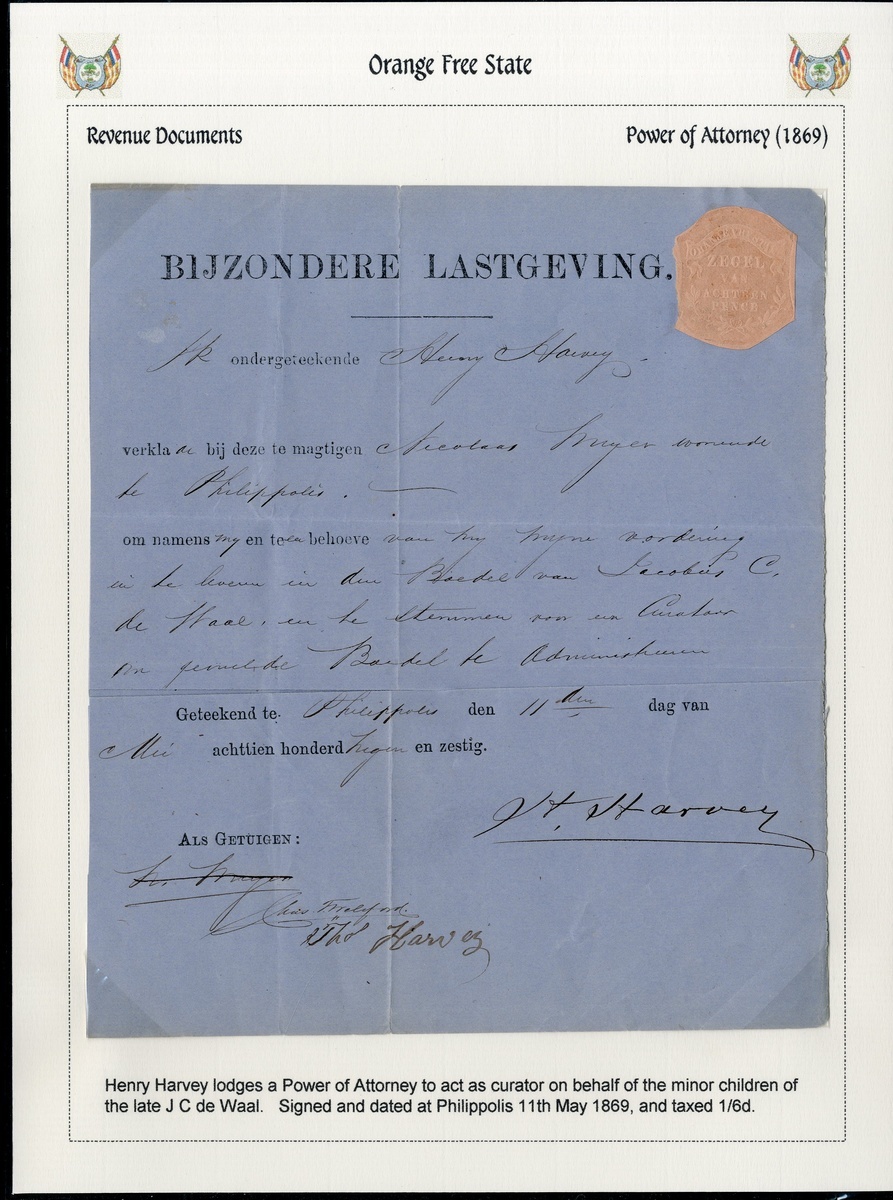 Orange Free State
Revenue Documents
Power of Attorney (1869)
BIJZONDERE LASTGEVING.
ZEGEL
ACHTTIEN
PENCE
Ik ondergeteekende Henry Harvey.
verklade bij deze te magtigen Nicolaas wonende
te Philippolis.
om namens my en teen behoeve van my myne vordering
in te leveren in den Boedel van Jacobus C.
de Waal. en te stemmen voor een Curator
om gemelde Boedel te Administreren
Geteekend te Philippolis den 11den dag van
Mei achttien honderd negen en zestig.
H. Harvey
ALS GETUIGEN:
Thos Harvey
Henry Harvey lodges a Power of Attorney to act as curator on behalf of the minor children of
the late J C de Waal. Signed and dated at Philippolis 11th May 1869, and taxed 1/6d.